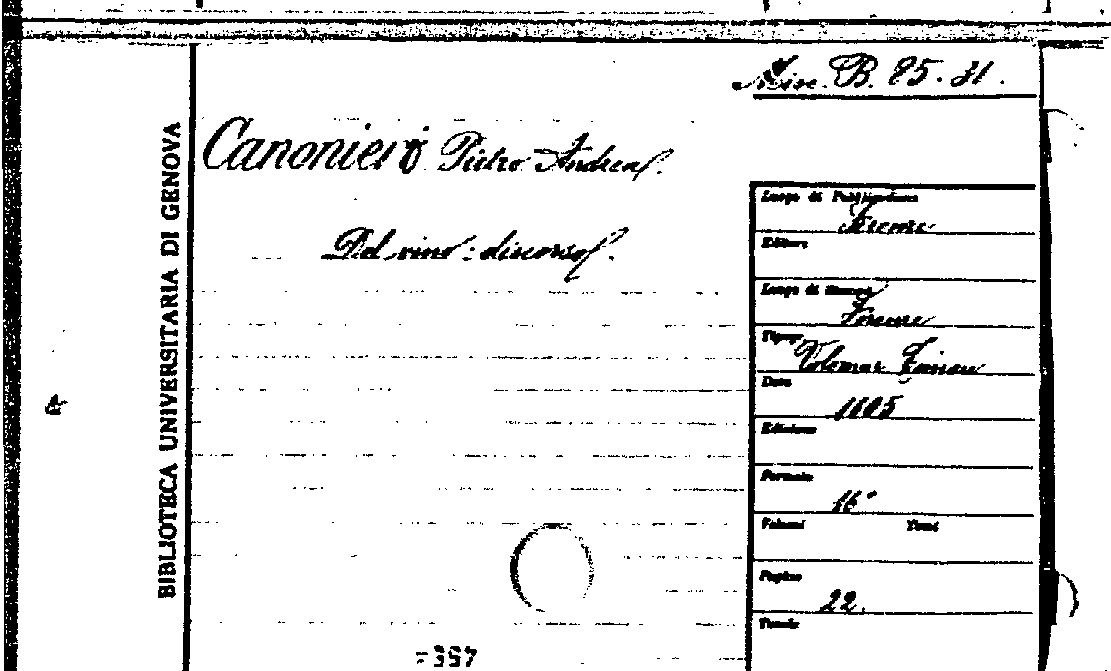 Misc. B. 85. 31.
BIBLIOTECA UNIVERSITARIA DI GENOVA
Canoniero Pietro Andrea.
Del vino: discorso.
Luogo di Pubblicazione
Firenze
Editore
Luogo di Stampa
Firenze
Tipogr.
Volcmar
Data
1605
Edizione
Formato
16°
Volumi Tomi
Pagine
22.
Tavole